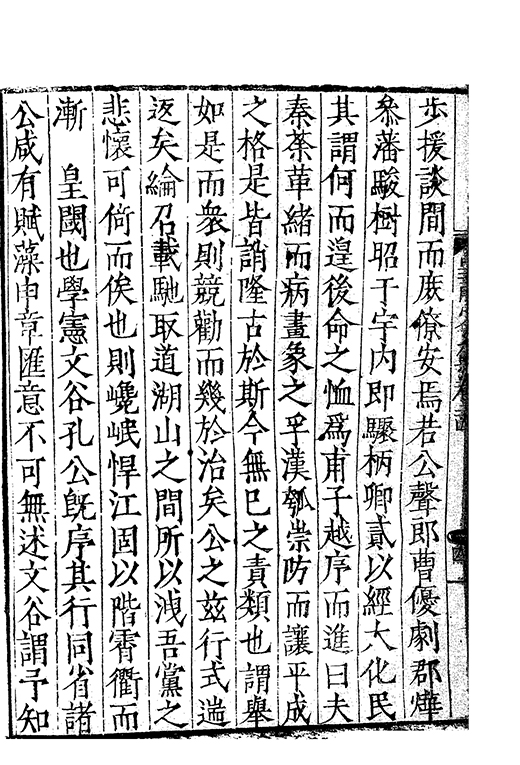 歩援談間而庶僚安焉若公聲郎曹優劇郡燁
叅藩駿樹昭于宇内即驟柄卿貳以經大化民
其謂何而遑後命之恤爲甫子越序而進曰夫
秦荼革緒而病畫象之乎漢瓠崇防而讓平成
之格是皆誚隆古於斯今無已之責類也謂舉
如是而衆則競勸而幾於治矣公之兹行式遄
返矣綸召載馳取道湖山之間所以洩吾黨之
悲懷可倚而俟也則巉岷悍江固以階霄衢而
漸　皇閩也學憲文谷孔公旣序其行同省諸
公咸有賦藻申章匯意不可無述文谷謂予知